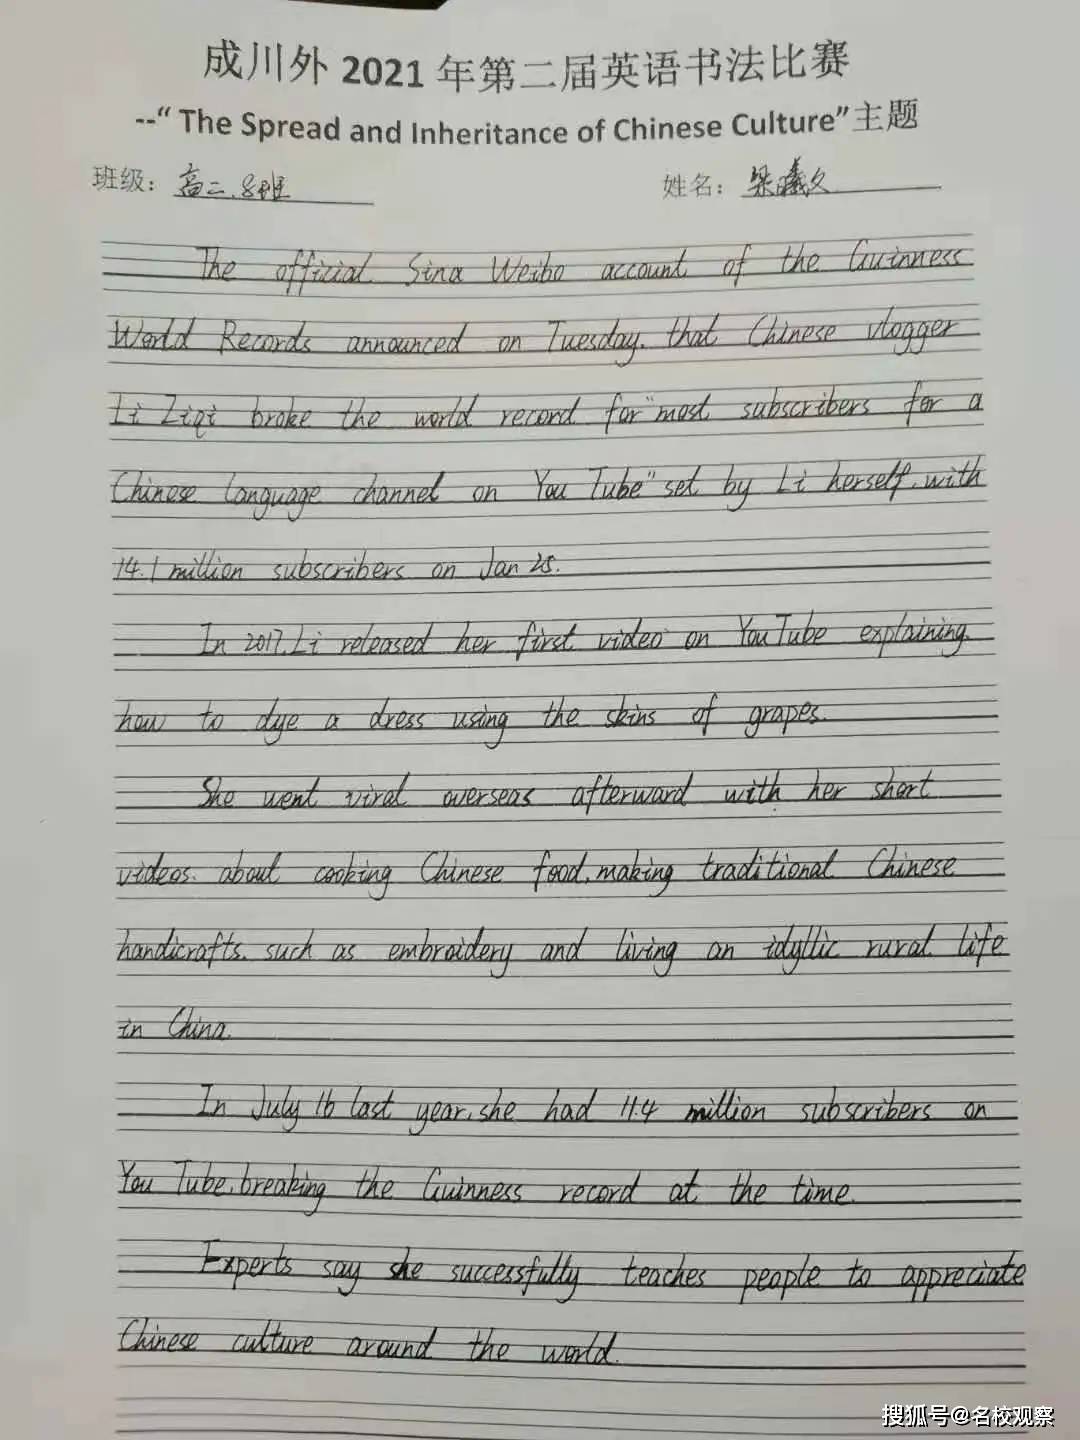 成川外 2021 年第二届英语书法比赛
--“ The Spread and Inheritance of Chinese Culture”主题
班级：高二.8班 姓名：梁曦文
The official Sina Weibo account of the Guinness
World Records announced on Tuesday. that Chinese vlogger
Li Ziqi broke the world record for "most subscribers for a
Chinese language channel on You Tube" set by Li herself, with
14.1 million subscribers on Jan 25.
In 2017, Li released her first video on YouTube explaining
how to dye a dress using the skins of grapes.
She went viral overseas afterward with her short
videos. about cooking Chinese food, making traditional Chinese
handicrafts. such as embroidery and living an idyllic rural life
in China.
In July 16 last year, she had 11.4 million subscribers on
You Tube, breaking the Guinness record at the time.
Experts say she successfully teaches people to appreciate
Chinese culture around the world.
搜狐号@名校观察